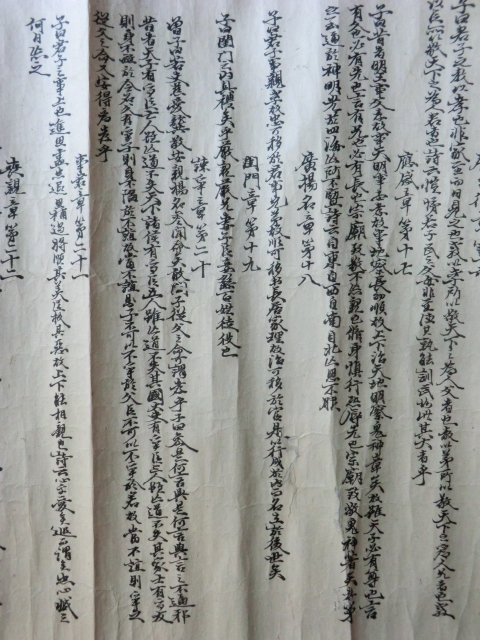 章第十六
子曰君子之教以孝也非家至而日見之也教以孝所以敬天下之爲人父者也教以弟所以敬天下之爲人兄者也教
以臣所以敬天下之爲人君者也詩云愷悌君子民之父母非至德其孰能訓民如此其大者乎
應感章第十七
子曰昔者明王事父孝故事天明事母孝故事地察長幼順故上下治天地明察鬼神章矣故雖天子必有尊也言
有父也必有先也言有兄也必有長也宗廟致敬不忘親也脩身慎行恐辱先也宗廟致敬鬼神著矣孝弟
之至通於神明光于四海亡所不暨詩云自東自西自南自北亡思不服
廣揚名章第十八
子曰君子事親孝故忠可移於君事兄弟故順可移於長居家理故治可移於官是以行成於内而名立於後世矣
閨門章第十九
子曰閨門之内具禮矣乎嚴親嚴兄妻子臣妾繇百姓徒役也
諫爭章第二十
曾子曰若夫慈愛龔敬安親揚名參聞命矣敢問子從父之命可謂孝乎子曰參是何言與是何言與言之不通邪
昔者天子有爭臣七人雖亡道不失天下諸侯有爭臣五人雖亡道不失其國大夫有爭臣三人雖亡道不失其家士有爭友
則身不離於令名父有爭子則身不陷於不誼故當不誼則子不可以不爭於父臣不可以不爭於君故當不誼則爭之
從父之命又安得爲孝乎
事君章第二十一
子曰君子之事上也進思盡忠退思補過將順其美匡救其惡故上下能相親也詩云心乎愛矣遐不謂矣忠心臧之
何日忘之
喪親章第二十二